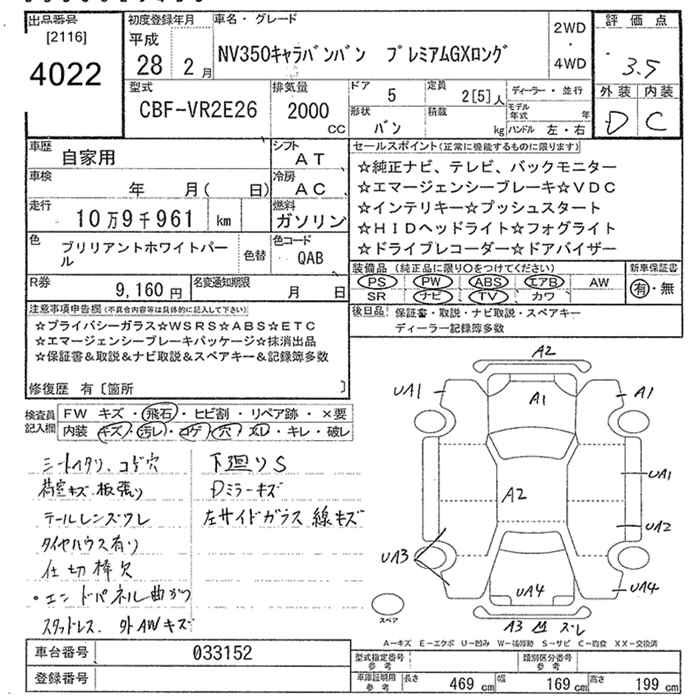 出品番号
[2116]
4022
初度登録年月
平成
28 2月
車名・グレード
NV350キャラバンバン プレミアムGXロング
2WD
・
4WD
評価点
3.5
外装 内装
D C
型式
CBF-VR2E26
排気量
2000
CC
ドア 5
定員 2[5]人
ディーラー・並行
形状 バン
積載 kg
モデル年式 年
ハンドル 左・右
車歴
自家用
シフト
AT
車検
年 月( 日)
冷房
AC
走行
10万9千961 km
燃料
ガソリン
色
ブリリアントホワイトパール
色替
色コード
QAB
R券
9,160円
名変通知期限
月 日
セールスポイント(正常に機能するものに限ります)
☆純正ナビ、テレビ、バックモニター
☆エマージェンシーブレーキ☆VDC
☆インテリキー☆プッシュスタート
☆HIDヘッドライト☆フォグライト
☆ドライブレコーダー☆ドアバイザー
装備品 (純正品に限り○をつけてください)
新車保証書
PS PW ABS エアB AW
SR ナビ TV カワ
有・無
後日品 保証書・取説・ナビ取説・スペアキー
ディーラー記録簿多数
注意事項申告欄(不具合内容等は具体的に記入して下さい)
☆プライバシーガラス☆WSRS☆ABS☆ETC
☆エマージェンシーブレーキパッケージ☆抹消出品
☆保証書&取説&ナビ取説&スペアキー&記録簿多数
修復歴 有〔箇所 〕
検査員記入欄
FW キズ・飛石・ヒビ割・リペア跡・×要
内装 キズ・汚レ・コゲ・穴・スレ・キレ・破レ
シートヘタリ、コゲ穴
荷室キズ、板張り
テールレンズワレ
タイヤハウス有り
仕切棒欠
・エンドパネル曲がり
スタッドレス、外AWキズ
下廻りS
Dミラーキズ
左サイドガラス線キズ
A2
UA1
A1
A1
UA1
A2
UA2
UA3
UA4
UA4
スペア
A3 凹 ズレ
A-キズ E-エクボ U-凹み W-補修跡 S-サビ C-腐食 XX-交換済
車台番号 033152
登録番号
型式指定番号
参考
類別区分番号
参考
車庫証明用
参考
長さ 469 cm
幅 169 cm
高さ 199 cm